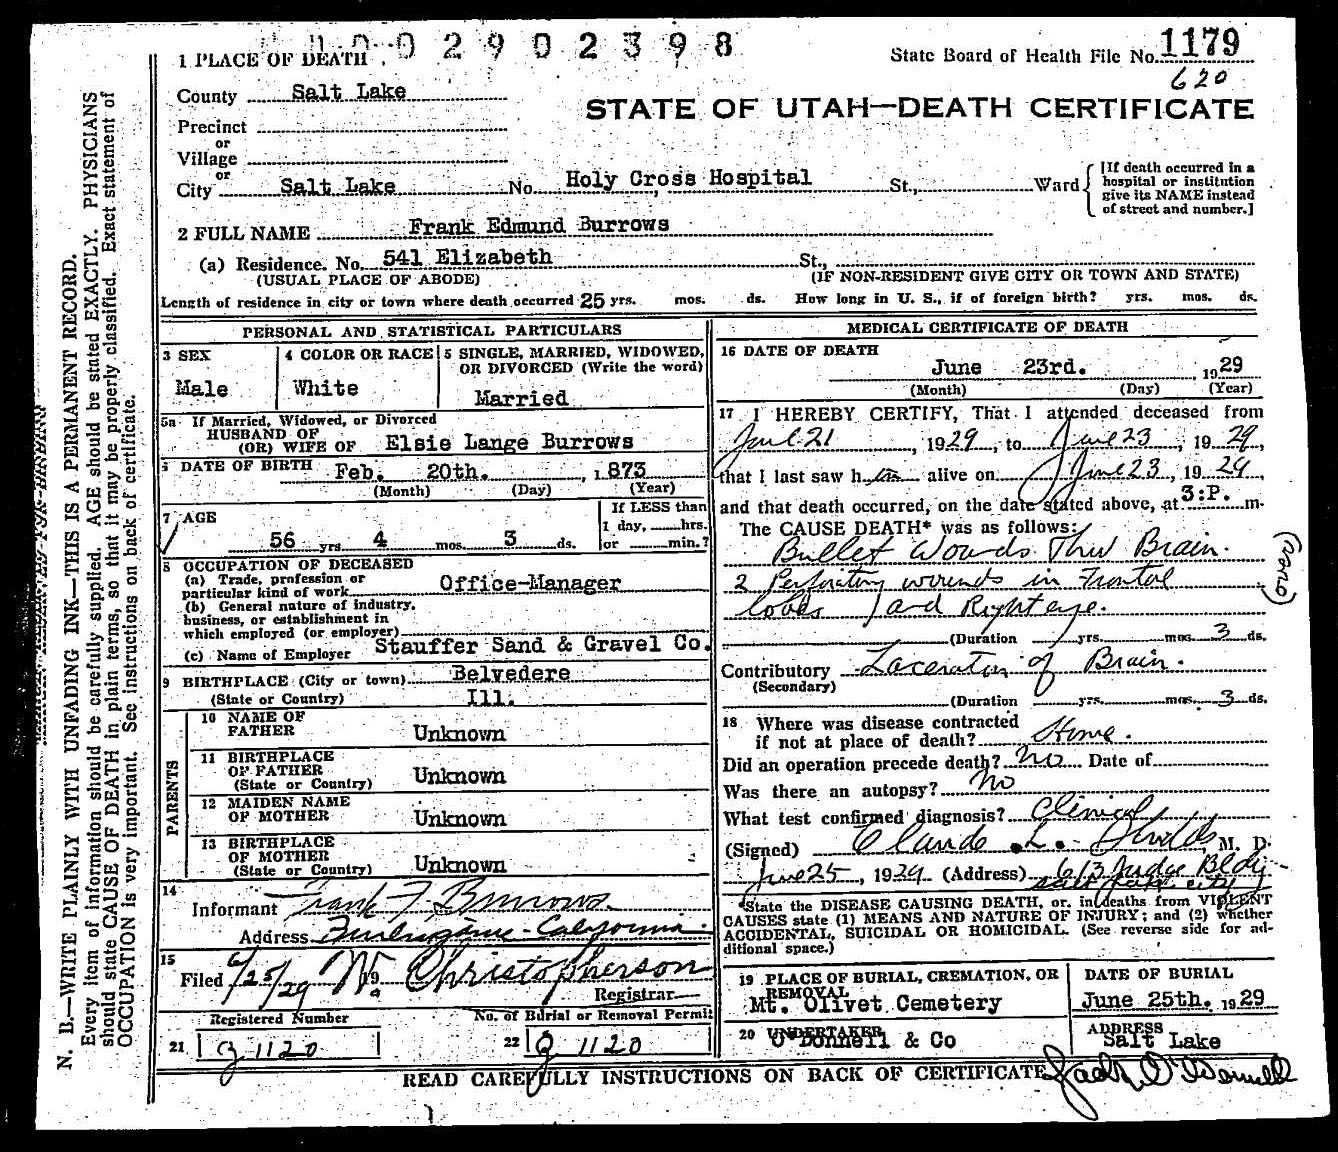 1002902398
State Board of Health File No. 1179
620
1 PLACE OF DEATH
County Salt Lake
STATE OF UTAH—DEATH CERTIFICATE
Precinct
or
Village
or
City Salt Lake No. Holy Cross Hospital St., Ward
[If death occurred in a hospital or institution give its NAME instead of street and number.]
2 FULL NAME Frank Edmund Burrows
(a) Residence. No. 541 Elizabeth St.,
(USUAL PLACE OF ABODE) (IF NON-RESIDENT GIVE CITY OR TOWN AND STATE)
Length of residence in city or town where death occurred 25 yrs. mos. ds. How long in U. S., if of foreign birth? yrs. mos. ds.
PERSONAL AND STATISTICAL PARTICULARS
3 SEX
Male
4 COLOR OR RACE
White
5 SINGLE, MARRIED, WIDOWED,
OR DIVORCED (Write the word)
Married
5a If Married, Widowed, or Divorced
HUSBAND OF
(OR) WIFE OF Elsie Lange Burrows
6 DATE OF BIRTH Feb. 20th. , 1873
(Month) (Day) (Year)
7 AGE
56 yrs. 4 mos. 3 ds.
If LESS than
1 day, hrs.
or min.?
8 OCCUPATION OF DECEASED
(a) Trade, profession or
particular kind of work Office-Manager
(b) General nature of industry,
business, or establishment in
which employed (or employer)
(c) Name of Employer Stauffer Sand & Gravel Co.
9 BIRTHPLACE (City or town) Belvedere
(State or Country) Ill.
PARENTS
10 NAME OF
FATHER Unknown
11 BIRTHPLACE
OF FATHER
(State or Country) Unknown
12 MAIDEN NAME
OF MOTHER Unknown
13 BIRTHPLACE
OF MOTHER
(State or Country) Unknown
14
Informant Frank F. Burrows
Address Burlingame - California
15
Filed 6/25/29 19 W. Christopherson
Registrar
Registered Number No. of Burial or Removal Permit
21 1120 22 1120
MEDICAL CERTIFICATE OF DEATH
16 DATE OF DEATH
June 23rd. , 1929
(Month) (Day) (Year)
17 I HEREBY CERTIFY, That I attended deceased from
June 21, 1929, to June 23, 1929,
that I last saw him alive on June 23, 1929
and that death occurred, on the date stated above, at 3:P. m.
The CAUSE DEATH* was as follows:
Bullet Wounds Thru Brain.
2 Perforating wounds in Frontal
lobes and Right eye.
(Duration yrs. mos. 3 ds.
Contributory Laceration of Brain.
(Secondary)
(Duration yrs. mos. 3 ds.
18 Where was disease contracted
if not at place of death? Home.
Did an operation precede death? No Date of
Was there an autopsy? No
What test confirmed diagnosis? Clinical
(Signed) Claude L. Shields M. D.
June 25, 1929 (Address) 613 Judge Bldg
Salt Lake City
*State the DISEASE CAUSING DEATH, or, in deaths from VIOLENT
CAUSES state (1) MEANS AND NATURE OF INJURY; and (2) whether
ACCIDENTAL, SUICIDAL OR HOMICIDAL. (See reverse side for additional space.)
19 PLACE OF BURIAL, CREMATION, OR
REMOVAL
Mt. Olivet Cemetery
DATE OF BURIAL
June 25th. 1929
20 UNDERTAKER
O'Donnell & Co
ADDRESS
Salt Lake
READ CAREFULLY INSTRUCTIONS ON BACK OF CERTIFICATE
N. B.—WRITE PLAINLY WITH UNFADING INK—THIS IS A PERMANENT RECORD.
Every item of information should be carefully supplied. AGE should be stated EXACTLY. PHYSICIANS
should state CAUSE OF DEATH in plain terms, so that it may be properly classified. Exact statement of
OCCUPATION is very important. See instructions on back of certificate.